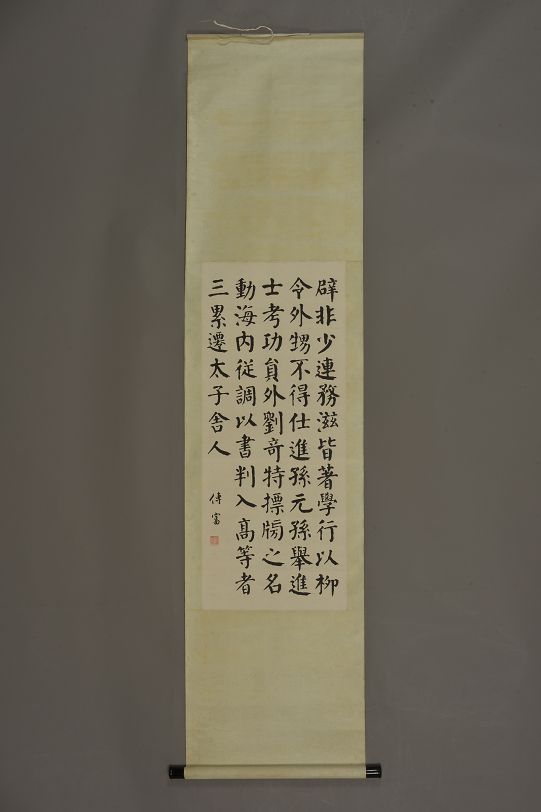 辟非少連務滋皆著學行以柳
令外甥不得仕進孫元孫舉進
士考功員外劉奇特標牓之名
動海內從調以書判入高等者
三累遷太子舍人
傅富